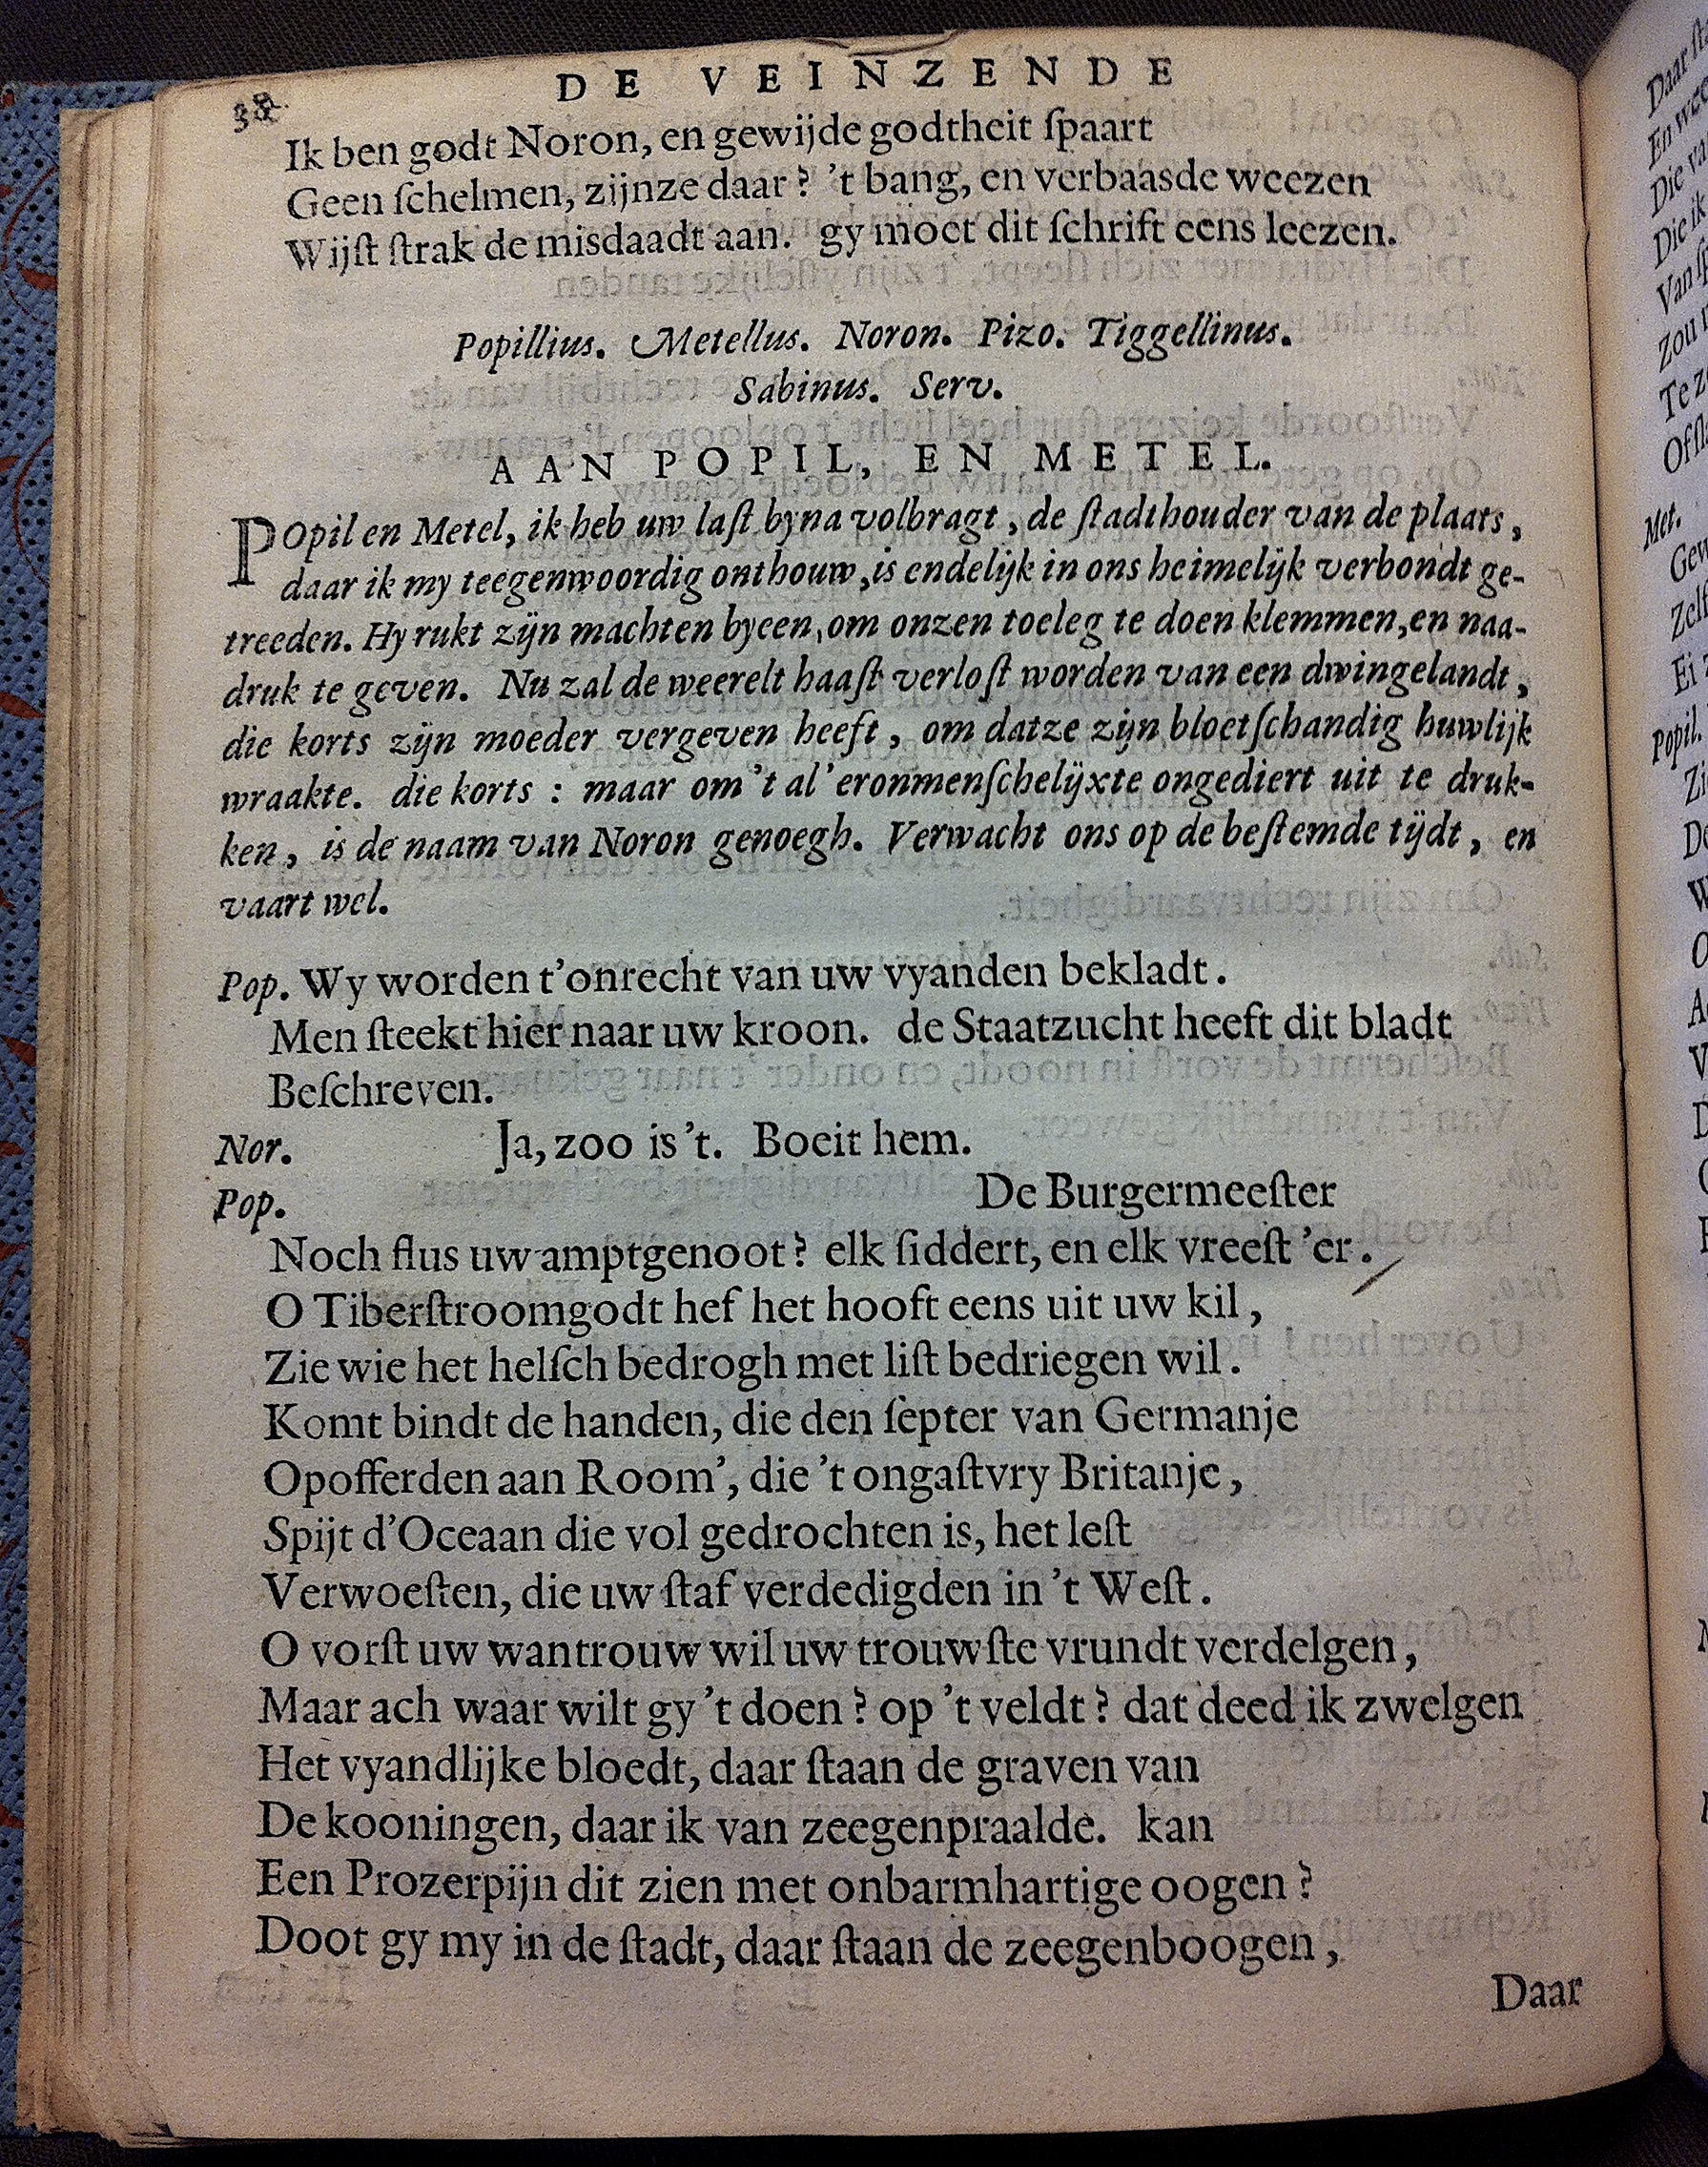 38 DE VEINZENDE
Ik ben godt Noron, en gewijde godtheit ſpaart
Geen ſchelmen, zijnze daar? 't bang, en verbaasde weezen
Wijſt ſtrak de misdaadt aan. gy moet dit ſchrift eens leezen.
Popillius. Metellus. Noron. Pizo. Tiggellinus.
Sabinus. Serv.
AAN POPIL, EN METEL.
POpil en Metel, ik heb uw laſt byna volbragt, de ſtadthouder van de plaats,
daar ik my teegenwoordig onthouw, is endelijk in ons heimelijk verbondt ge-
treeden. Hy rukt zijn machten byeen, om onzen toeleg te doen klemmen, en naa-
druk te geven. Nu zal de weerelt haaſt verloſt worden van een dwingelandt,
die korts zijn moeder vergeven heeft, om datze zijn bloetſchandig huwlijk
wraakte. die korts : maar om 't al 'eronmenſchelijxte ongediert uit te druk-
ken, is de naam van Noron genoegh. Verwacht ons op de beſtemde tijdt, en
vaart wel.
Pop. Wy worden t'onrecht van uw vyanden bekladt.
Men ſteekt hier naar uw kroon. de Staatzucht heeft dit bladt
Beſchreven.
Nor. Ja, zoo is 't. Boeit hem.
Pop. De Burgermeeſter
Noch flus uw amptgenoot? elk ſiddert, en elk vreeſt 'er.
O Tiberſtroomgodt hef het hooft eens uit uw kil,
Zie wie het helſch bedrogh met liſt bedriegen wil.
Komt bindt de handen, die den ſepter van Germanje
Opofferden aan Room', die 't ongaſtvry Britanje,
Spijt d'Oceaan die vol gedrochten is, het leſt
Verwoeſten, die uw ſtaf verdedigden in 't Weſt.
O vorſt uw wantrouw wil uw trouwſte vrundt verdelgen,
Maar ach waar wilt gy 't doen? op 't veldt? dat deed ik zwelgen
Het vyandlijke bloedt, daar ſtaan de graven van
De kooningen, daar ik van zeegenpraalde. kan
Een Prozerpijn dit zien met onbarmhartige oogen?
Doot gy my in de ſtadt, daar ſtaan de zeegenboogen,
Daar